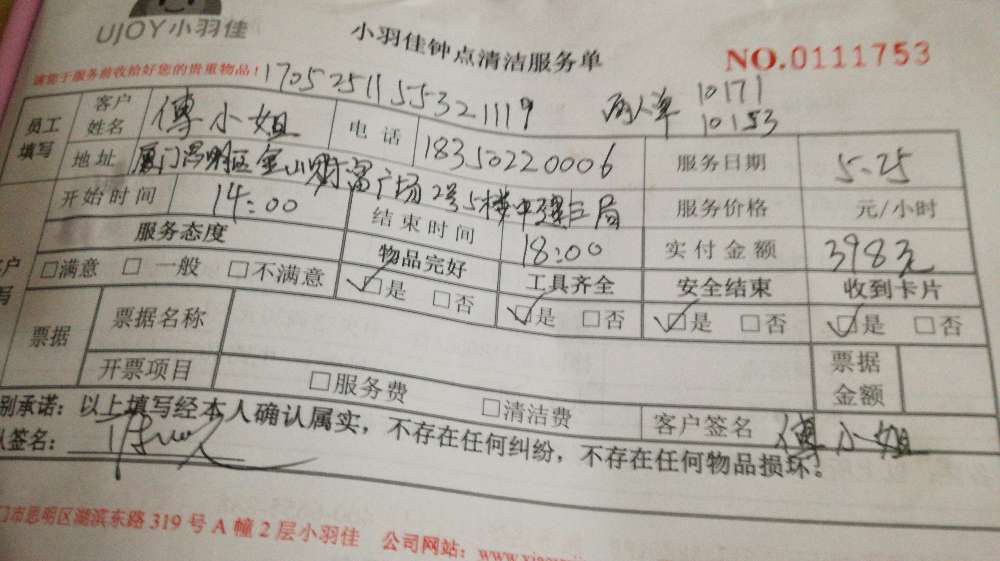 UJOY小羽佳
小羽佳钟点清洁服务单
NO.0111753
请您于服务前收拾好您的贵重物品!
170525115532 1119
两人单 10171
10153
员工填写 客户姓名 傅小姐 电话 18350220006 服务日期 5.25
地址 厦门思明区金山财富广场2号5楼中建三局 服务价格 元/小时
开始时间 14:00 结束时间 18:00 实付金额 398元
服务态度 物品完好 工具齐全 安全结束 收到卡片
□满意 □一般 □不满意 ☑是 □否 ☑是 □否 ☑是 □否 ☑是 □否
票据 票据名称 票据金额
开票项目 □服务费 □清洁费 客户签名 傅小姐
别承诺:以上填写经本人确认属实,不存在任何纠纷,不存在任何物品损坏!
签名:
门市思明区湖滨东路319号A幢2层小羽佳 公司网站: